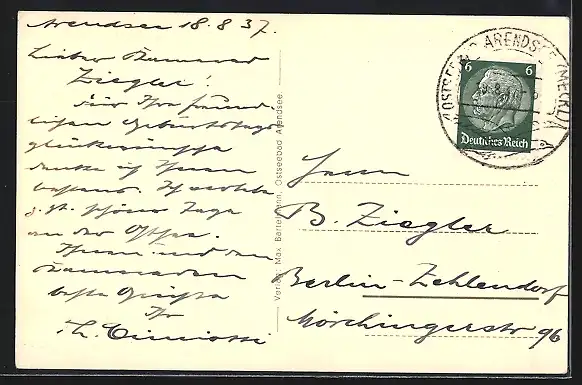 Arendsee 18.8.37.
Lieber Kamerad
Ziegler!
Für Ihre freund-
lichen Geburtstags
glückwünsche
danke ich Ihnen
bestens. Ich verlebe
z. Zt. schöne Tage
an der Ostsee.
Ihnen und den
Kameraden
beste Grüße
Ihr
Verlag: Max Bartelmann, Ostseebad Arendsee.
OSTSEEBAD ARENDSEE (MECKL)
6 6
Deutsches Reich
Herrn
B. Ziegler
Berlin-Zehlendorf
Mörchingerstr 96